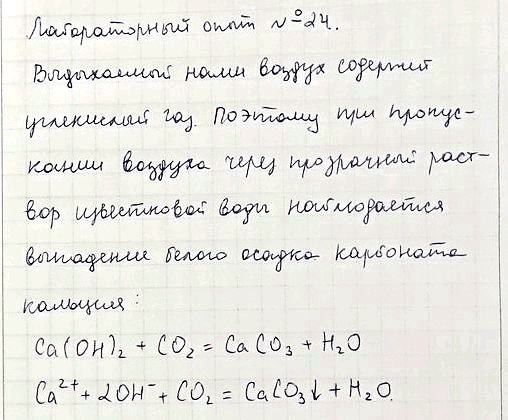 Лабораторный опыт №24.
Выдыхаемый нами воздух содержит
углекислый газ. Поэтому при пропус-
кании воздуха через прозрачный раст-
вор известковой воды наблюдается
выпадение белого осадка карбоната
кальция:
Ca(OH)₂ + CO₂ = CaCO₃ + H₂O
Ca²⁺ + 2OH⁻ + CO₂ = CaCO₃↓ + H₂O.